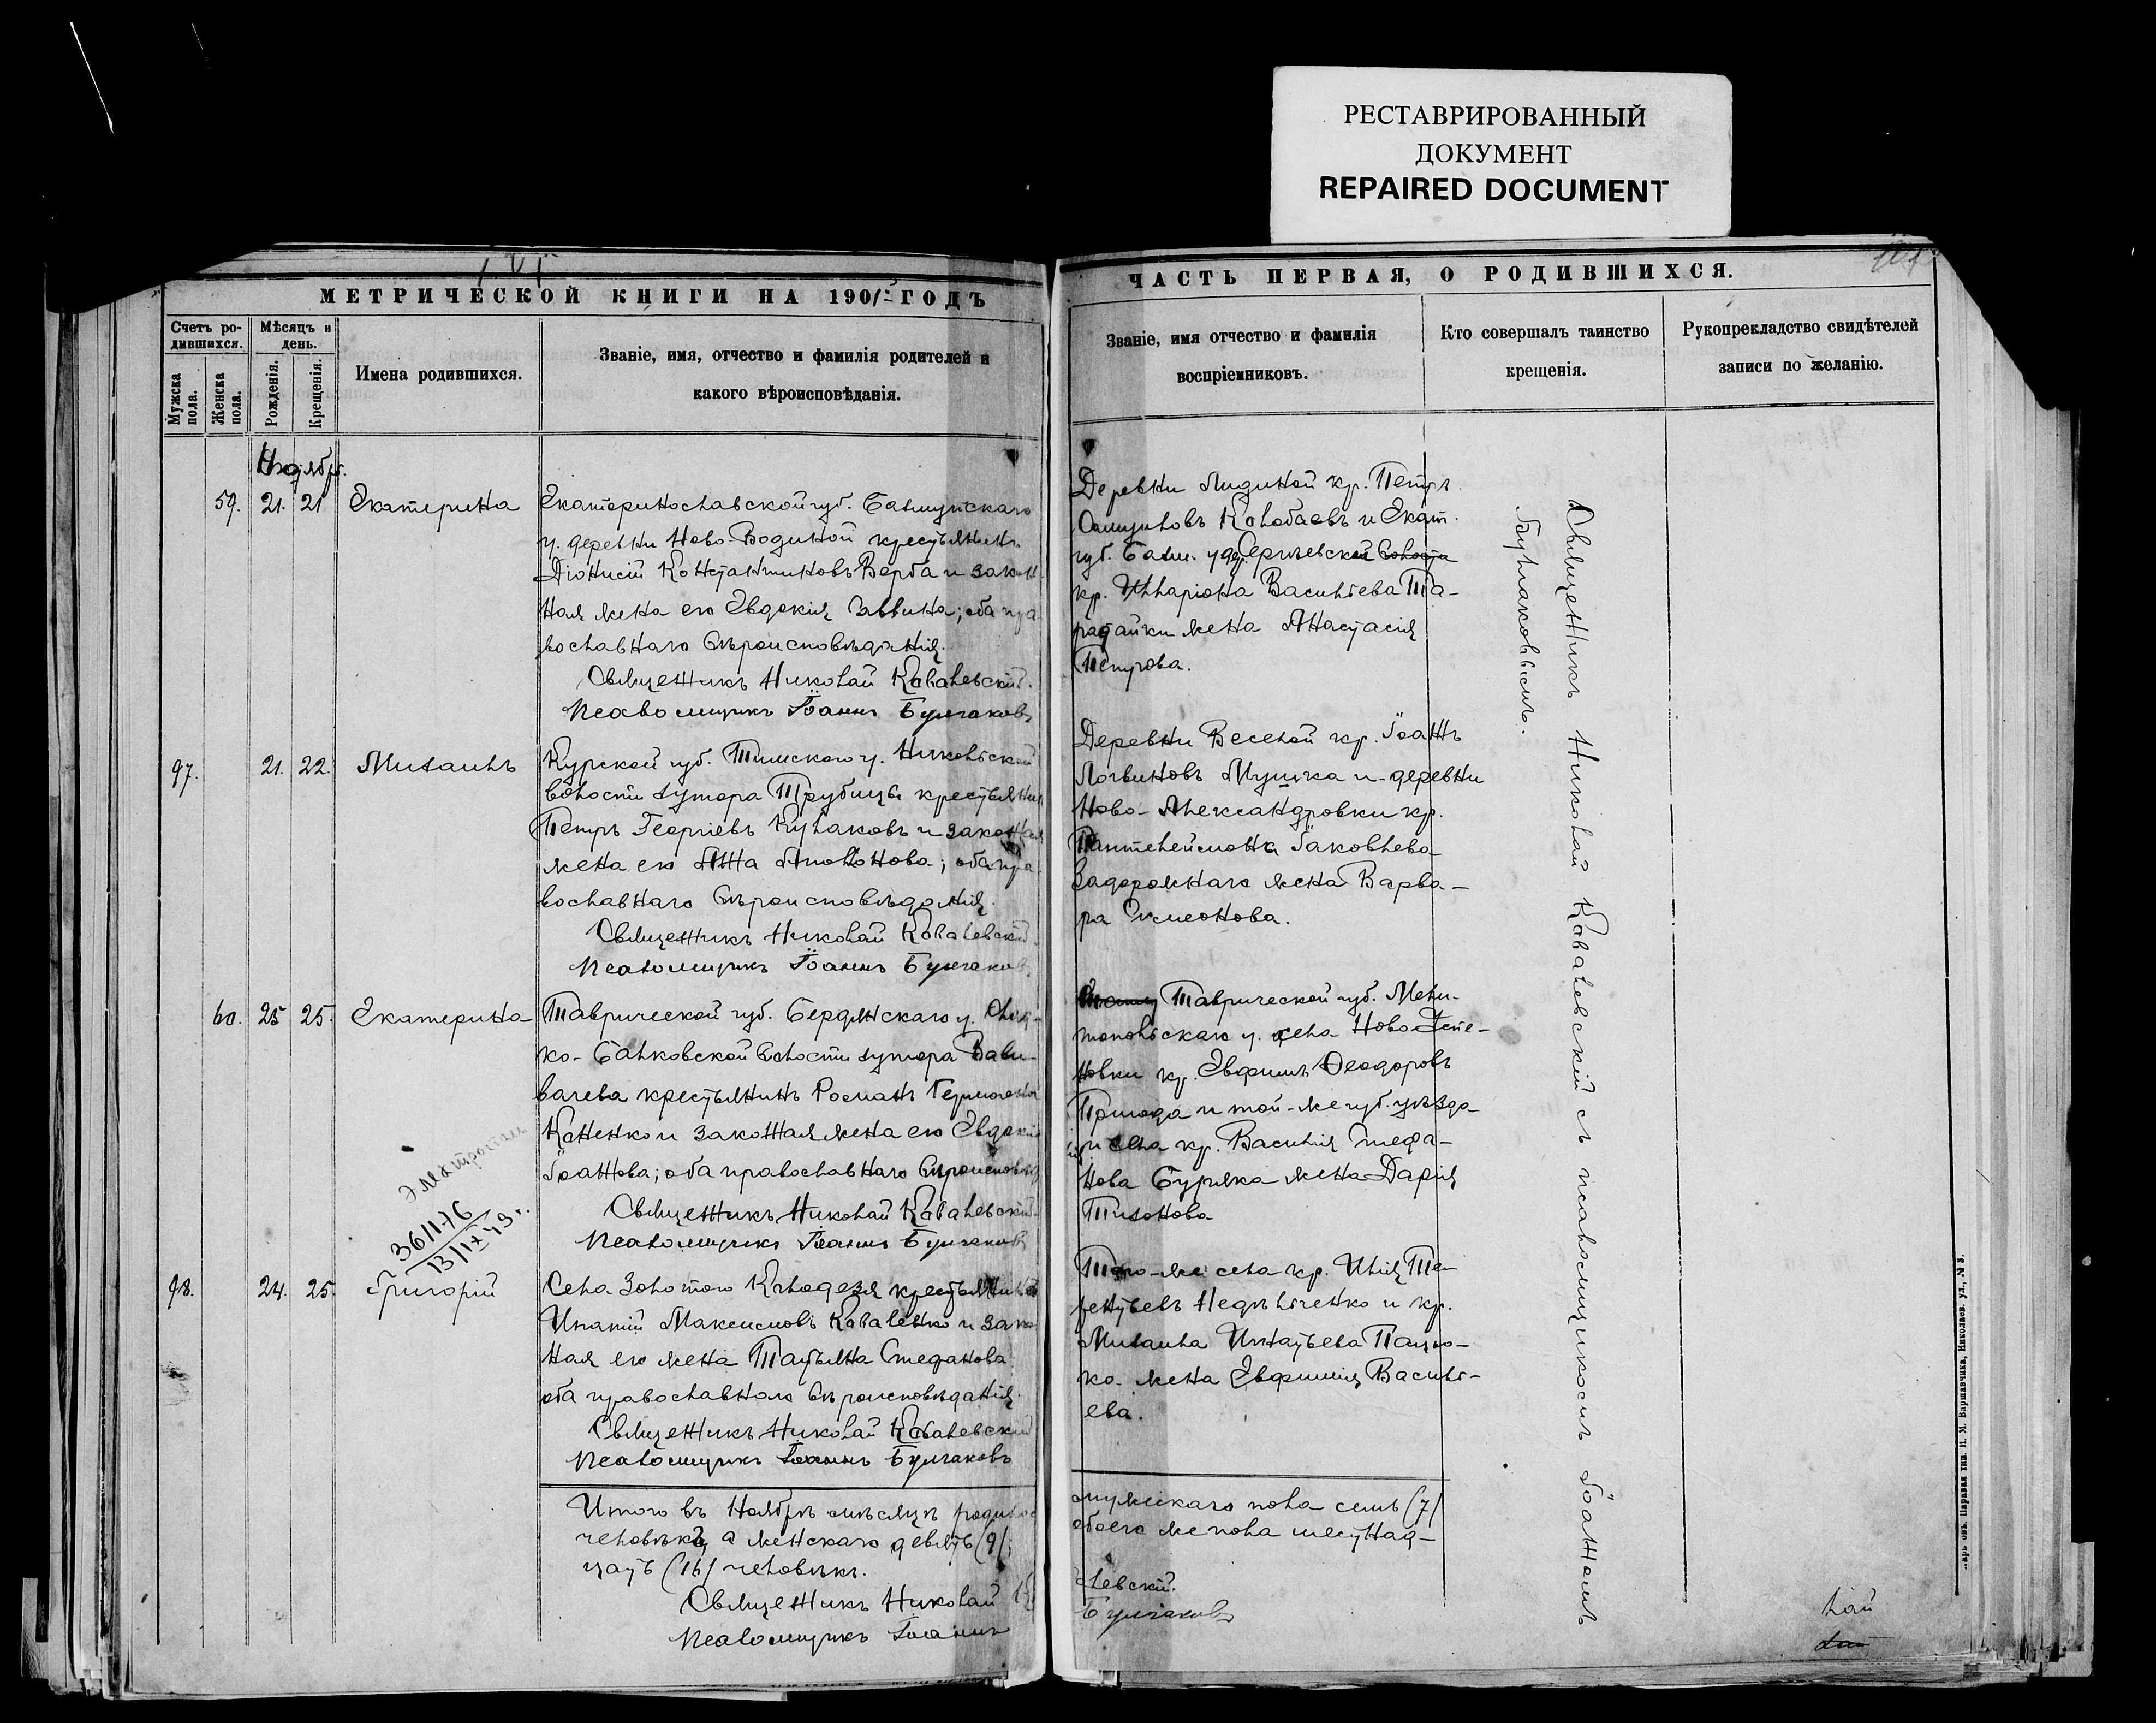 РЕСТАВРИРОВАННЫЙ
ДОКУМЕНТ
REPAIRED DOCUMENT
МЕТРИЧЕСКОЙ КНИГИ НА 190 ГОДЪ
Счетъ ро-
дившихся.
Мужска
пола.
Женска
пола.
Мѣсяцъ и
день.
Рожденія.
Крещенія.
Имена родившихся.
Званіе, имя, отчество и фамилія родителей и
какого вѣроисповѣданія.
Ноябрь.
59. 21. 21 Екатерина
Екатеринославской губ. Бахмутскаго
у. деревни Ново-Водиной крестьянинъ
Діонисій Константиновъ Верба и закон-
ная жена его Евдокія Саввина; оба пра
вославнаго вѣроисповѣданія.
Священникъ Николай Ковалевскій.
Псаломщикъ Іоаннъ Булгаковъ
97. 21. 22. Михаилъ
Курской губ. Тимскаго у. Никольской
волости хутора Трубицы крестьянинъ
Петръ Георгіевъ Кулаковъ и законная
жена его Анна ; оба пра
вославнаго вѣроисповѣданія.
Священникъ Николай Ковалевскій
Псаломщикъ Іоаннъ Булгаковъ
60. 25 25. Екатерина
Таврической губ. Бердянскаго у.
ко-Балковской волости хутора
крестьянинъ Романъ
и законная жена его Евдокія
Іоаннова; оба православнаго вѣроисповѣд
Священникъ Николай Ковалевскій
Псаломщикъ Іоаннъ Булгаковъ
36/11-16
13/IX 49 г.
98. 24. 25. Григорій
Села Золотого Колодезя крестьянинъ
Игнатій Максимовъ Коваленко и закон
ная его жена Татьяна Стефанова
оба православнаго вѣроисповѣданія.
Священникъ Николай Ковалевскій
Псаломщикъ Іоаннъ Булгаковъ
Итого въ Ноябрѣ мѣсяцѣ родилось
человѣкъ, а женскаго девять (9);
цать (16) человѣкъ.
Священникъ Николай
Псаломщикъ Іоаннъ
ЧАСТЬ ПЕРВАЯ, О РОДИВШИХСЯ.
Званіе, имя отчество и фамилія
воспріемниковъ.
Кто совершалъ таинство
крещенія.
Рукоприкладство свидѣтелей
записи по желанію.
Деревни Лидиной кр. Петръ
Коlобаевъ и Екат.
губ. Бахм. у. дер. Сергіевской волости
кр. Илларіона Васильева Та-
ратайки жена Анастасія
Петрова.
Деревни Веселой кр. Іоаннъ
Логвиновъ Мушка и деревни
Ново-Александровки кр.
Пантелеймона Іаковлева
Задорожнаго жена Варва-
ра Симеонова.
Таврической губ. Мели-
топольскаго у. села Ново-Успе-
новки кр. Евфимъ Феодоровъ
и той-же губ. уѣзда
и села кр. Василія Стефа-
нова Буряка жена Дарія
Тихонова
Того-же села кр. Илія Те-
рентьевъ Недѣльченко и кр.
Михаила Игнатьева Пащю-
ко жена Евфимія Василь-
ева.
мужскаго пола семь (7)
обоего же пола шестнад-
левскій.
Булгаковъ
Священникъ Николай Ковалевскій съ псаломщикомъ Іоанномъ
Булгаковымъ.
лай